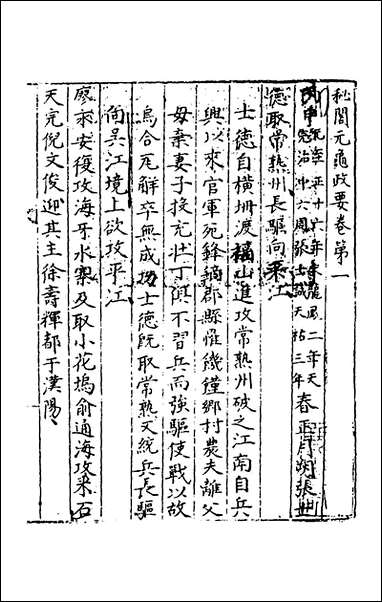 秘閣元龜政要卷第一
丙申元至正十六年宋龍鳳二年天
完治平六周張士誠天祐三年春正月朔張士
德取常熟州長驅向平江
士德自橫圳渡福山進攻常熟州破之江南自兵
興以來官軍死鋒鏑郡縣惟饑饉鄉村農夫離父
母棄妻子投充壯丁俱不習兵而強驅使戰以故
烏合瓦解卒無成功士德既取常熟又統兵長驅
向吳江境上欲攻平江
廖永安復攻海牙水寨及取小花塢俞通海攻采石
天完倪文俊迎其主徐壽輝都于漢陽